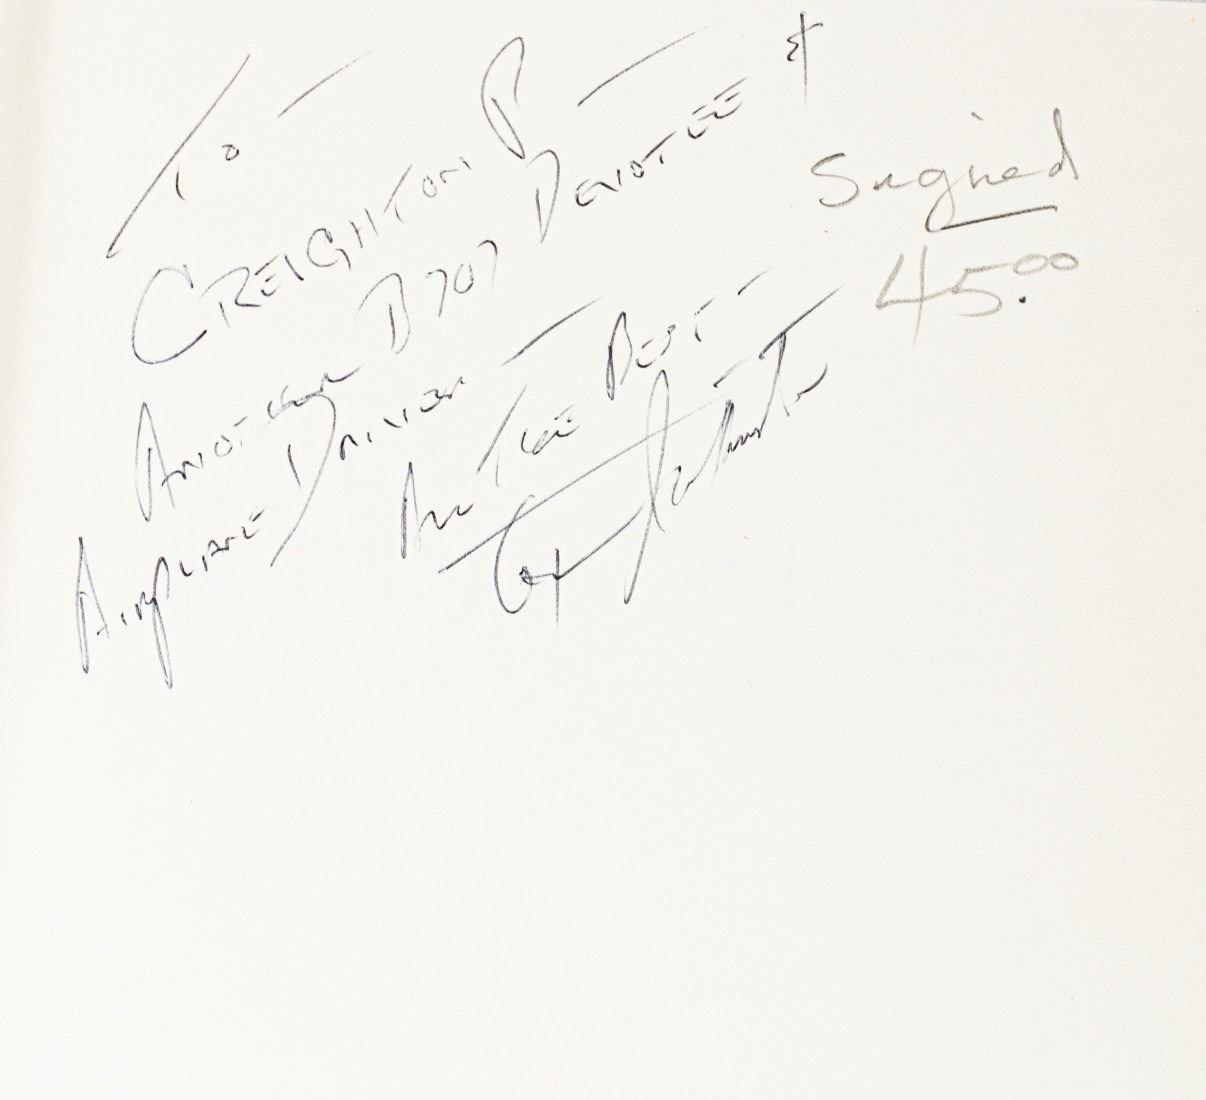 To —
CREIGHTON P —
ANOTHER B707 DEVOTEE &
AIRPLANE DRIVER —
ALL THE BEST —
Tex Johnston
Signed
45.00